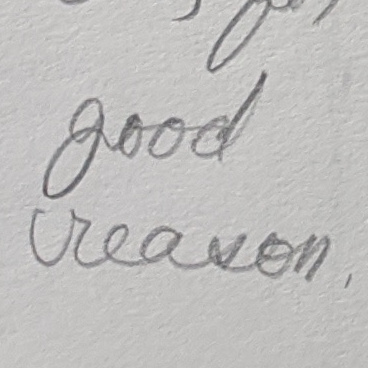 good
reason,